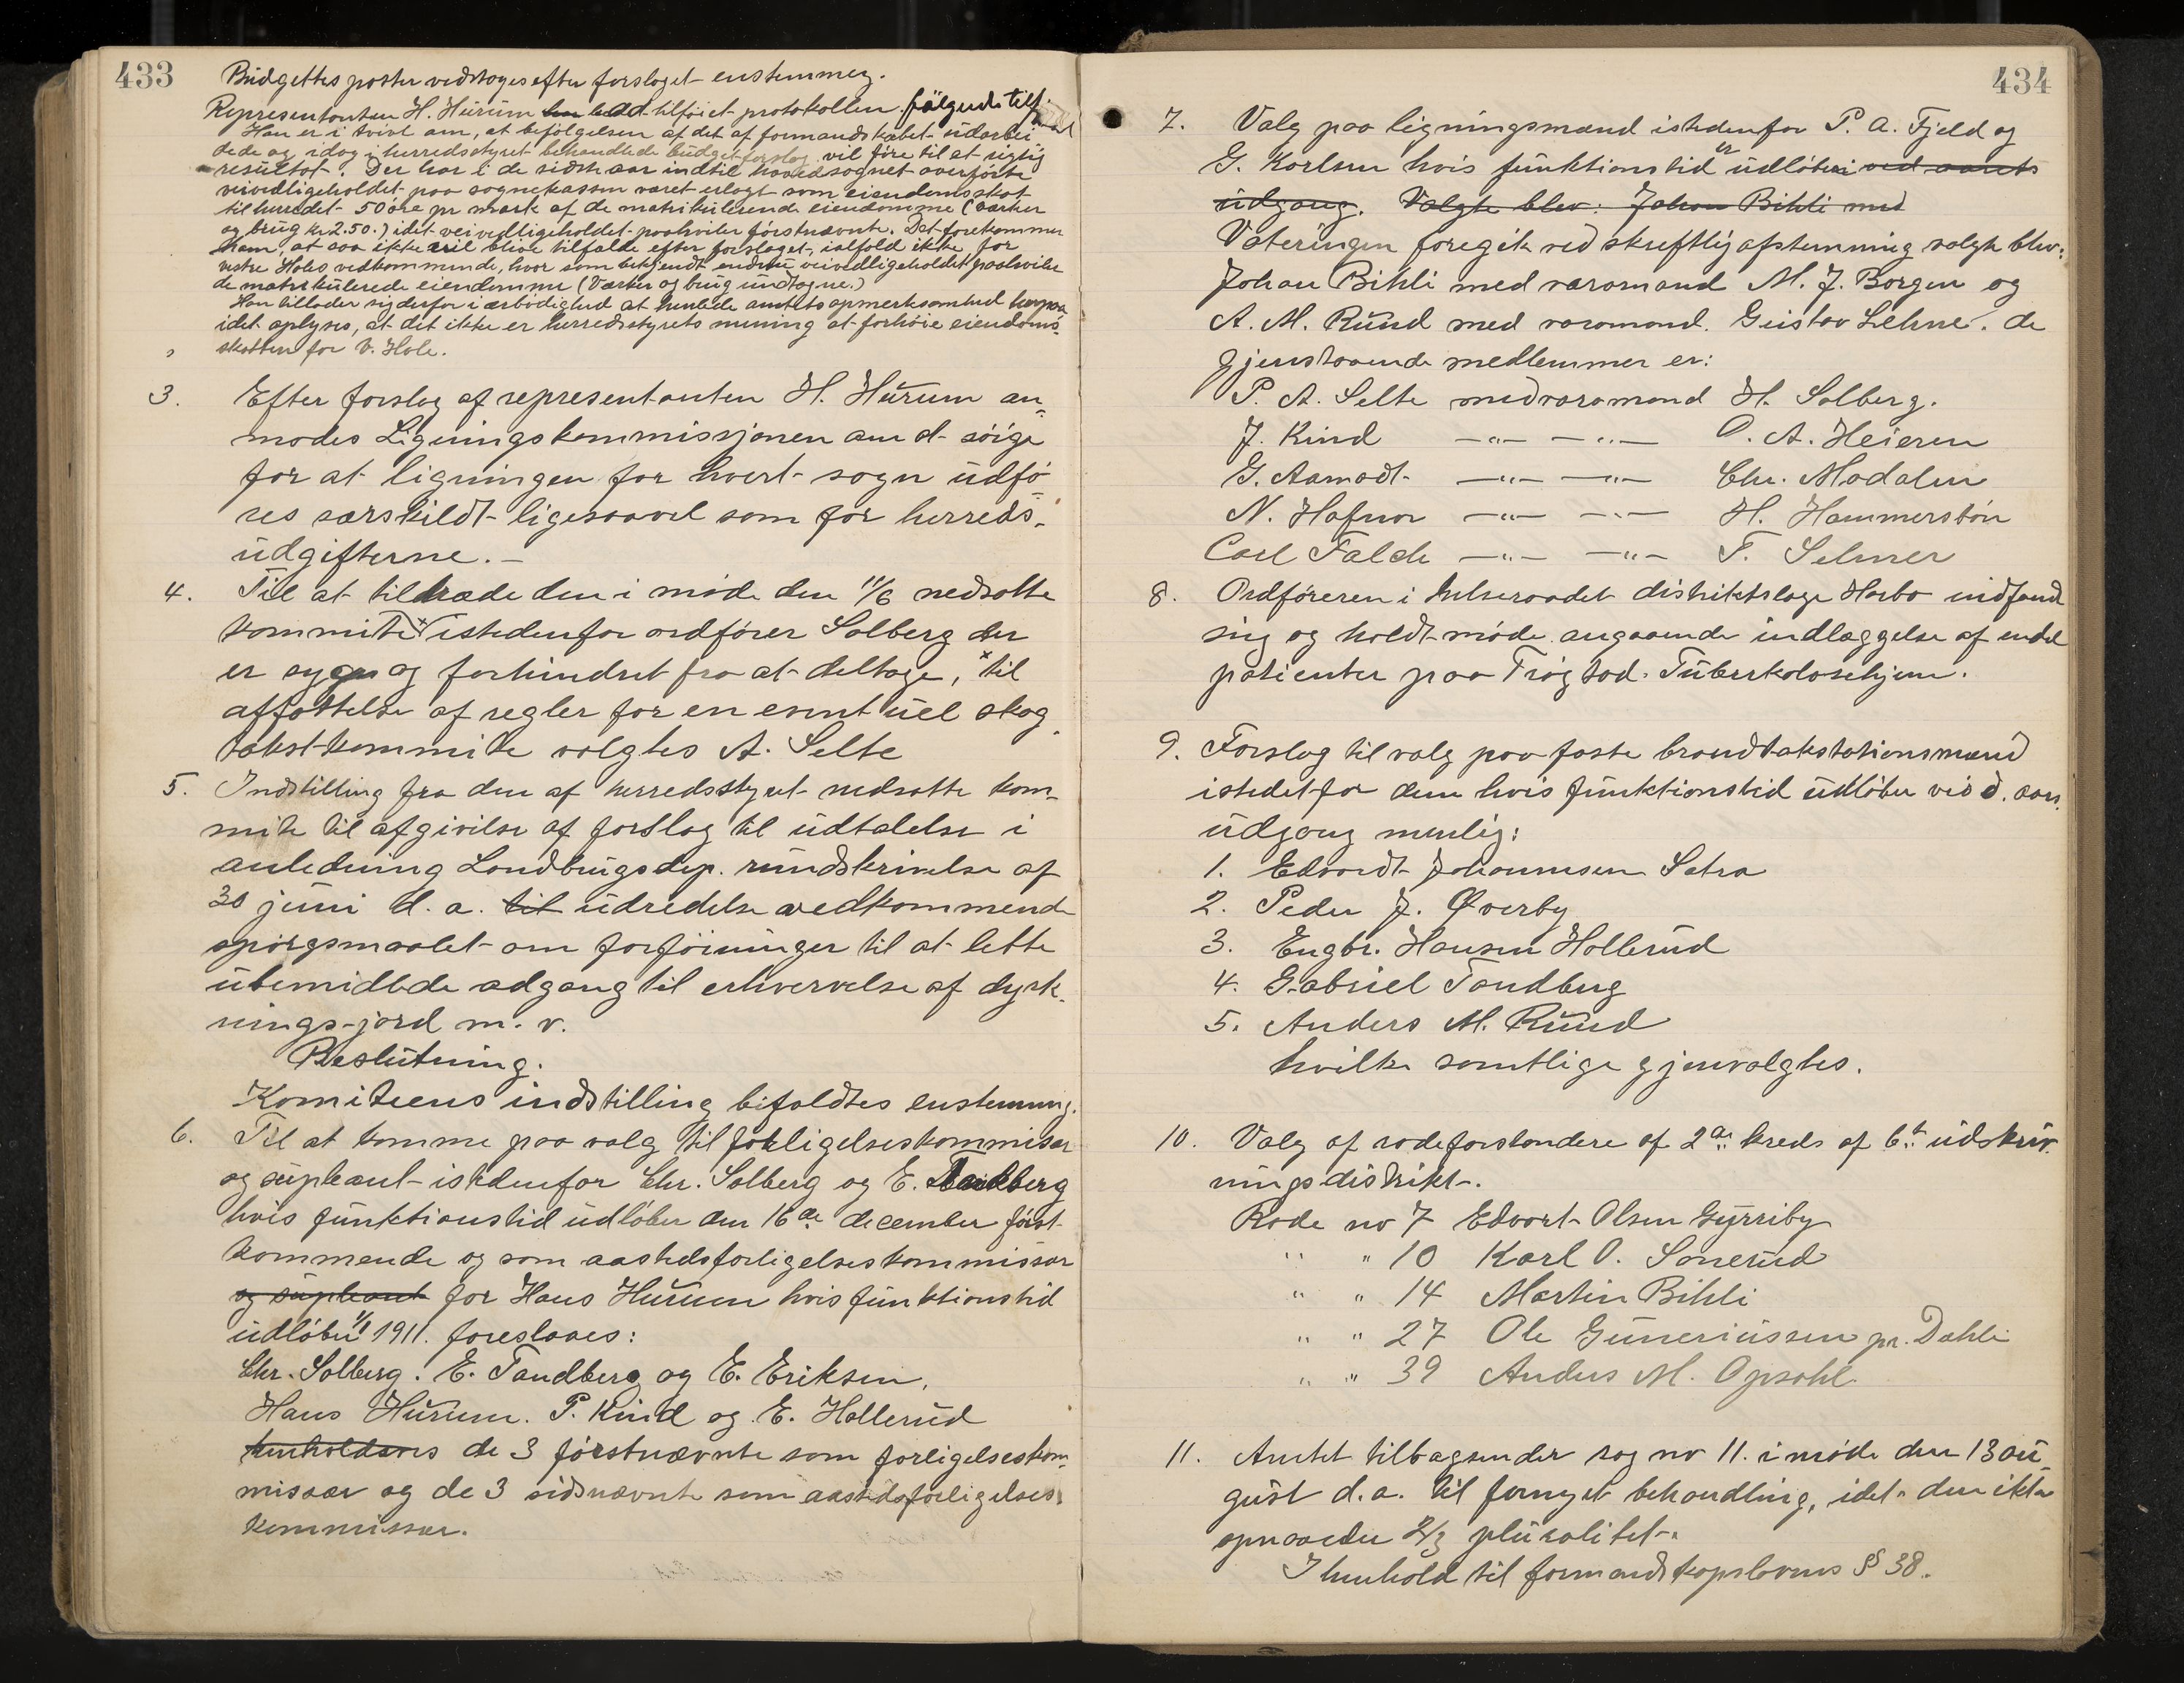 433
Budgettes poster vedtoges efter forslaget enstemmig.
Representanten H. Hurum lod tilføiet protokollen følgende
Han er i tvivl om, at befølgelsen af det af formandskabet udarbei
dede og idag i herredsstyret behandlede budgetforslag vil føre til et rigtig
resultat. Der har i de sidste aar indtil hovedsognet overførte
veivedligeholdet paa sognekassen været erlagt som eiendomsskat
til herredet 50 øre pr mark af de matrikulerende eiendomme (værker
og brug kr 2.50.) idet veivedligeholdet paahviler førstnævnte. Det forekommer
ham, at saa ikke vil blive tilfælde efter forslaget, ialfald ikke for
vestre Holes vedkommende, hvor som bekjendt endnu veivedligeholdet paahviler
de matrikulerede eiendomme (Værker og brug undtagne.)
Han tillader sig derfor i ærbødighed at henlede amtets opmerksomhed herpaa
idet oplyses, at det ikke er herredsstyrets mening at forhøie eiendoms-
skatten for V. Hole.
3. Efter forslag af representanten H. Hurum an-
modes Ligningskommissjonen om at søige
for at ligningen for hvert sogn udfø-
res særskildt ligesaavel som for herreds-
udgifterne. –
4. Til at tiltræde den i møde den 11/6 nedsatte
kommite x istedenfor ordfører Solberg der
er syg og forhindret fra at deltage, x til
affattelse af regler for en eventuel skog-
takstkommite valgtes A. Selte
5. Indstilling fra den af herredsstyret nedsatte kom-
mite til afgivelse af forslag til udtalelse i
anledning Landbrugsdep. rundskrivelse af
30 juni d. a. til udredelse vedkommende
spørgsmaalet om forføininger til at lette
ubemidlede adgang til erhvervelse af dyrk-
nings-jord m. v.
Beslutning.
Komiteens indstilling bifaldtes enstemmig.
6. Til at komme paa valg til forligelseskommisær
og supleant istedenfor Chr. Solberg og E. Tandberg
hvis funktionstid udløber den 16de december først-
kommende og som aastedsforligelseskommissær
og supleant for Hans Hurum hvis funktionstid
udløber 1/1 1911. foreslaaes:
Chr. Solberg. E. Tandberg og E. Eriksen,
Hans Hurum. P. Kind og E. Hollerud
henholdsvis de 3 førstnævnte som forligelseskom-
missær og de 3 sidsnævnte som aastedsforligelses-
kommissær.
434
7. Valg paa ligningsmænd istedenfor P. A. Fjeld og
G. Karlsen hvis funktionstid er udløben ved aarets
udgang. Valgte blev: Johan Bihli med
Voteringen foregik ved skreftlig afstemning valgte blev:
Johan Bihli med varamand M. J. Borgen og
A. M. Ruud med varamand. Gustav Lehne. de
gjenstaaende medlemmer er:
P. A. Selte med varamand H. Solberg.
J. Kind –"– –"– O. A. Heieren
G. Aamodt –"– –"– Chr. Modalen
N. Hafnor –"– –"– H. Hammerstøn
Carl Falch –"– –"– F. Selmer
8. Ordføreren i helseraadet distriktslæge Harbo indfandt
sig og holdt møde angaaende indlæggelse af endel
patienter paa Frøgtad. Tuberkolosehjem.
9. Forslag til valg paa faste brandtakstationsmænd
istedetfor dem hvis funktionstid udløber ved d. aars
udgang nemlig:
1. Edvardt Johannesen Sætra
2. Peder J. Øverby
3. Engbr. Hansen Hollerud
4. Gabriel Tandberg
5. Anders M. Ruud
hvilke samtlige gjenvalgtes.
10. Valg af rodeforstandere af 2den kreds af 6te udskriv-
ningsdistrikt.
Rode no 7 Edvart Olsen Gyrriby
" " 10 Karl O. Sønerud
" " 14 Martin Bihli
" " 27 Ole Guneriussen pr. Dahli
" " 39 Anders M. Opsahl
11. Amtet tilbagsender sag no 11. i møde den 13 au-
gust d.a. til fornyet behandling, idet den ikke
opnaaede 2/3 pluralitet.
I henhold til formandskapslovens § 38.